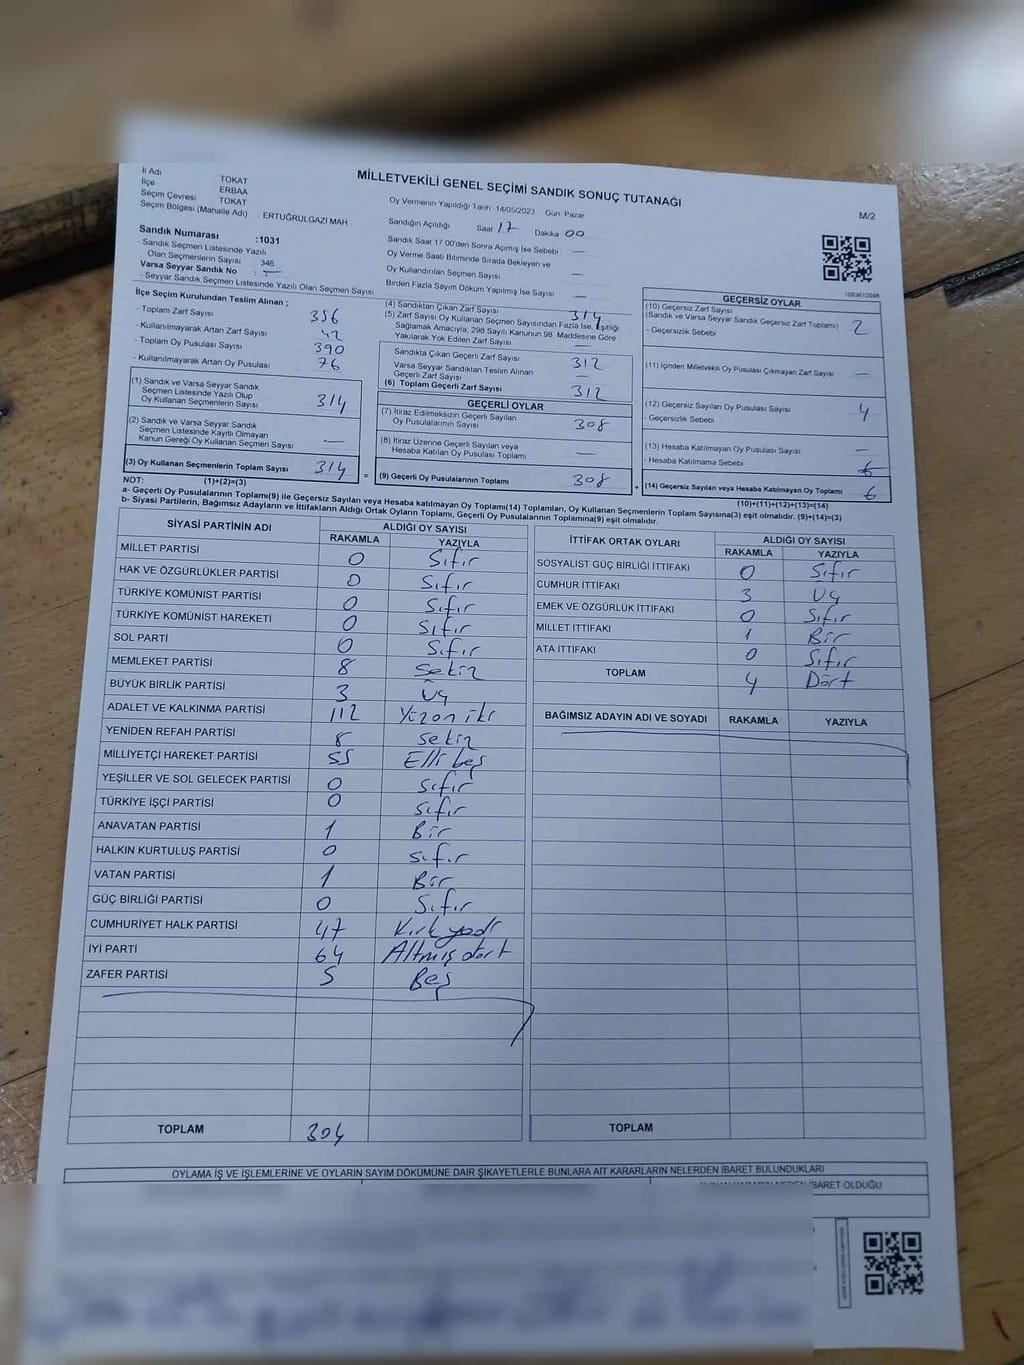 MİLLETVEKİLİ GENEL SEÇİMİ SANDIK SONUÇ TUTANAĞI
M/2
İl Adı TOKAT
İlçe ERBAA
Seçim Çevresi TOKAT
Seçim Bölgesi (Mahalle Adı) : ERTUĞRULGAZİ MAH
Sandık Numarası :1031
- Sandık Seçmen Listesinde Yazılı
Olan Seçmenlerin Sayısı 346
Varsa Seyyar Sandık No : —
- Seyyar Sandık Seçmen Listesinde Yazılı Olan Seçmen Sayısı
Oy Vermenin Yapıldığı Tarih 14/05/2023 Gün: Pazar
Sandığın Açıldığı Saat 17 Dakika 00
Sandık Saat 17 00'den Sonra Açılmış İse Sebebi —
Oy Verme Saati Bitiminde Sırada Bekleyen ve
Oy Kullandırılan Seçmen Sayısı —
Birden Fazla Sayım Döküm Yapılmış İse Sayısı —
İlçe Seçim Kurulundan Teslim Alınan ;
- Toplam Zarf Sayısı 356
- Kullanılmayarak Artan Zarf Sayısı 42
- Toplam Oy Pusulası Sayısı 390
- Kullanılmayarak Artan Oy Pusulası 76
(1) Sandık ve Varsa Seyyar Sandık
Seçmen Listesinde Yazılı Olup
Oy Kullanan Seçmenlerin Sayısı 314
(2) Sandık ve Varsa Seyyar Sandık
Seçmen Listesinde Kayıtlı Olmayan
Kanun Gereği Oy Kullanan Seçmen Sayısı —
(3) Oy Kullanan Seçmenlerin Toplam Sayısı 314 =
(4) Sandıktan Çıkan Zarf Sayısı 314
(5) Zarf Sayısı Oy Kullanan Seçmen Sayısından Fazla İse, Eşitliği
Sağlamak Amacıyla, 298 Sayılı Kanunun 98. Maddesine Göre
Yakılarak Yok Edilen Zarf Sayısı —
Sandıkta Çıkan Geçerli Zarf Sayısı 312
Varsa Seyyar Sandıktan Teslim Alınan
Geçerli Zarf Sayısı —
(6) Toplam Geçerli Zarf Sayısı 312
GEÇERLİ OYLAR
(7) İtiraz Edilmeksizin Geçerli Sayılan
Oy Pusulalarının Sayısı 308
(8) İtiraz Üzerine Geçerli Sayılan veya
Hesaba Katılan Oy Pusulası Toplamı —
(9) Geçerli Oy Pusulalarının Toplamı 308 +
GEÇERSİZ OYLAR
(10) Geçersiz Zarf Sayısı
(Sandık ve Varsa Seyyar Sandık Geçersiz Zarf Toplamı) 2
- Geçersizlik Sebebi
(11) İçinden Milletvekili Oy Pusulası Çıkmayan Zarf Sayısı —
(12) Geçersiz Sayılan Oy Pusulası Sayısı 4
- Geçersizlik Sebebi
(13) Hesaba Katılmayan Oy Pusulası Sayısı —
- Hesaba Katılmama Sebebi
(14) Geçersiz Sayılan veya Hesaba Katılmayan Oy Toplamı 6
(10)+(11)+(12)+(13)=(14)
NOT: (1)+(2)=(3)
a- Geçerli Oy Pusulalarının Toplamı(9) ile Geçersiz Sayılan veya Hesaba katılmayan Oy Toplamı(14) Toplamları, Oy Kullanan Seçmenlerin Toplam Sayısına(3) eşit olmalıdır. (9)+(14)=(3)
b- Siyasi Partilerin, Bağımsız Adayların ve İttifakların Aldığı Ortak Oyların Toplamı, Geçerli Oy Pusulalarının Toplamına(9) eşit olmalıdır.
SİYASİ PARTİNİN ADI ALDIĞI OY SAYISI
RAKAMLA YAZIYLA
MİLLET PARTİSİ 0 Sıfır
HAK VE ÖZGÜRLÜKLER PARTİSİ 0 Sıfır
TÜRKİYE KOMÜNİST PARTİSİ 0 Sıfır
TÜRKİYE KOMÜNİST HAREKETİ 0 Sıfır
SOL PARTİ 0 Sıfır
MEMLEKET PARTİSİ 8 Sekiz
BÜYÜK BİRLİK PARTİSİ 3 Üç
ADALET VE KALKINMA PARTİSİ 112 Yüzoniki
YENİDEN REFAH PARTİSİ 8 Sekiz
MİLLİYETÇİ HAREKET PARTİSİ 55 Elli beş
YEŞİLLER VE SOL GELECEK PARTİSİ 0 Sıfır
TÜRKİYE İŞÇİ PARTİSİ 0 Sıfır
ANAVATAN PARTİSİ 1 Bir
HALKIN KURTULUŞ PARTİSİ 0 Sıfır
VATAN PARTİSİ 1 Bir
GÜÇ BİRLİĞİ PARTİSİ 0 Sıfır
CUMHURİYET HALK PARTİSİ 47 Kırk yedi
İYİ PARTİ 64 Altmış dört
ZAFER PARTİSİ 5 Beş
TOPLAM 304
İTTİFAK ORTAK OYLARI ALDIĞI OY SAYISI
RAKAMLA YAZIYLA
SOSYALİST GÜÇ BİRLİĞİ İTTİFAKI 0 Sıfır
CUMHUR İTTİFAKI 3 Üç
EMEK VE ÖZGÜRLÜK İTTİFAKI 0 Sıfır
MİLLET İTTİFAKI 1 Bir
ATA İTTİFAKI 0 Sıfır
TOPLAM 4 Dört
BAĞIMSIZ ADAYIN ADI VE SOYADI RAKAMLA YAZIYLA
TOPLAM
OYLAMA İŞ VE İŞLEMLERİNE VE OYLARIN SAYIM DÖKÜMÜNE DAİR ŞİKAYETLERLE BUNLARA AİT KARARLARIN NELERDEN İBARET BULUNDUKLARI
İBARET OLDUĞU